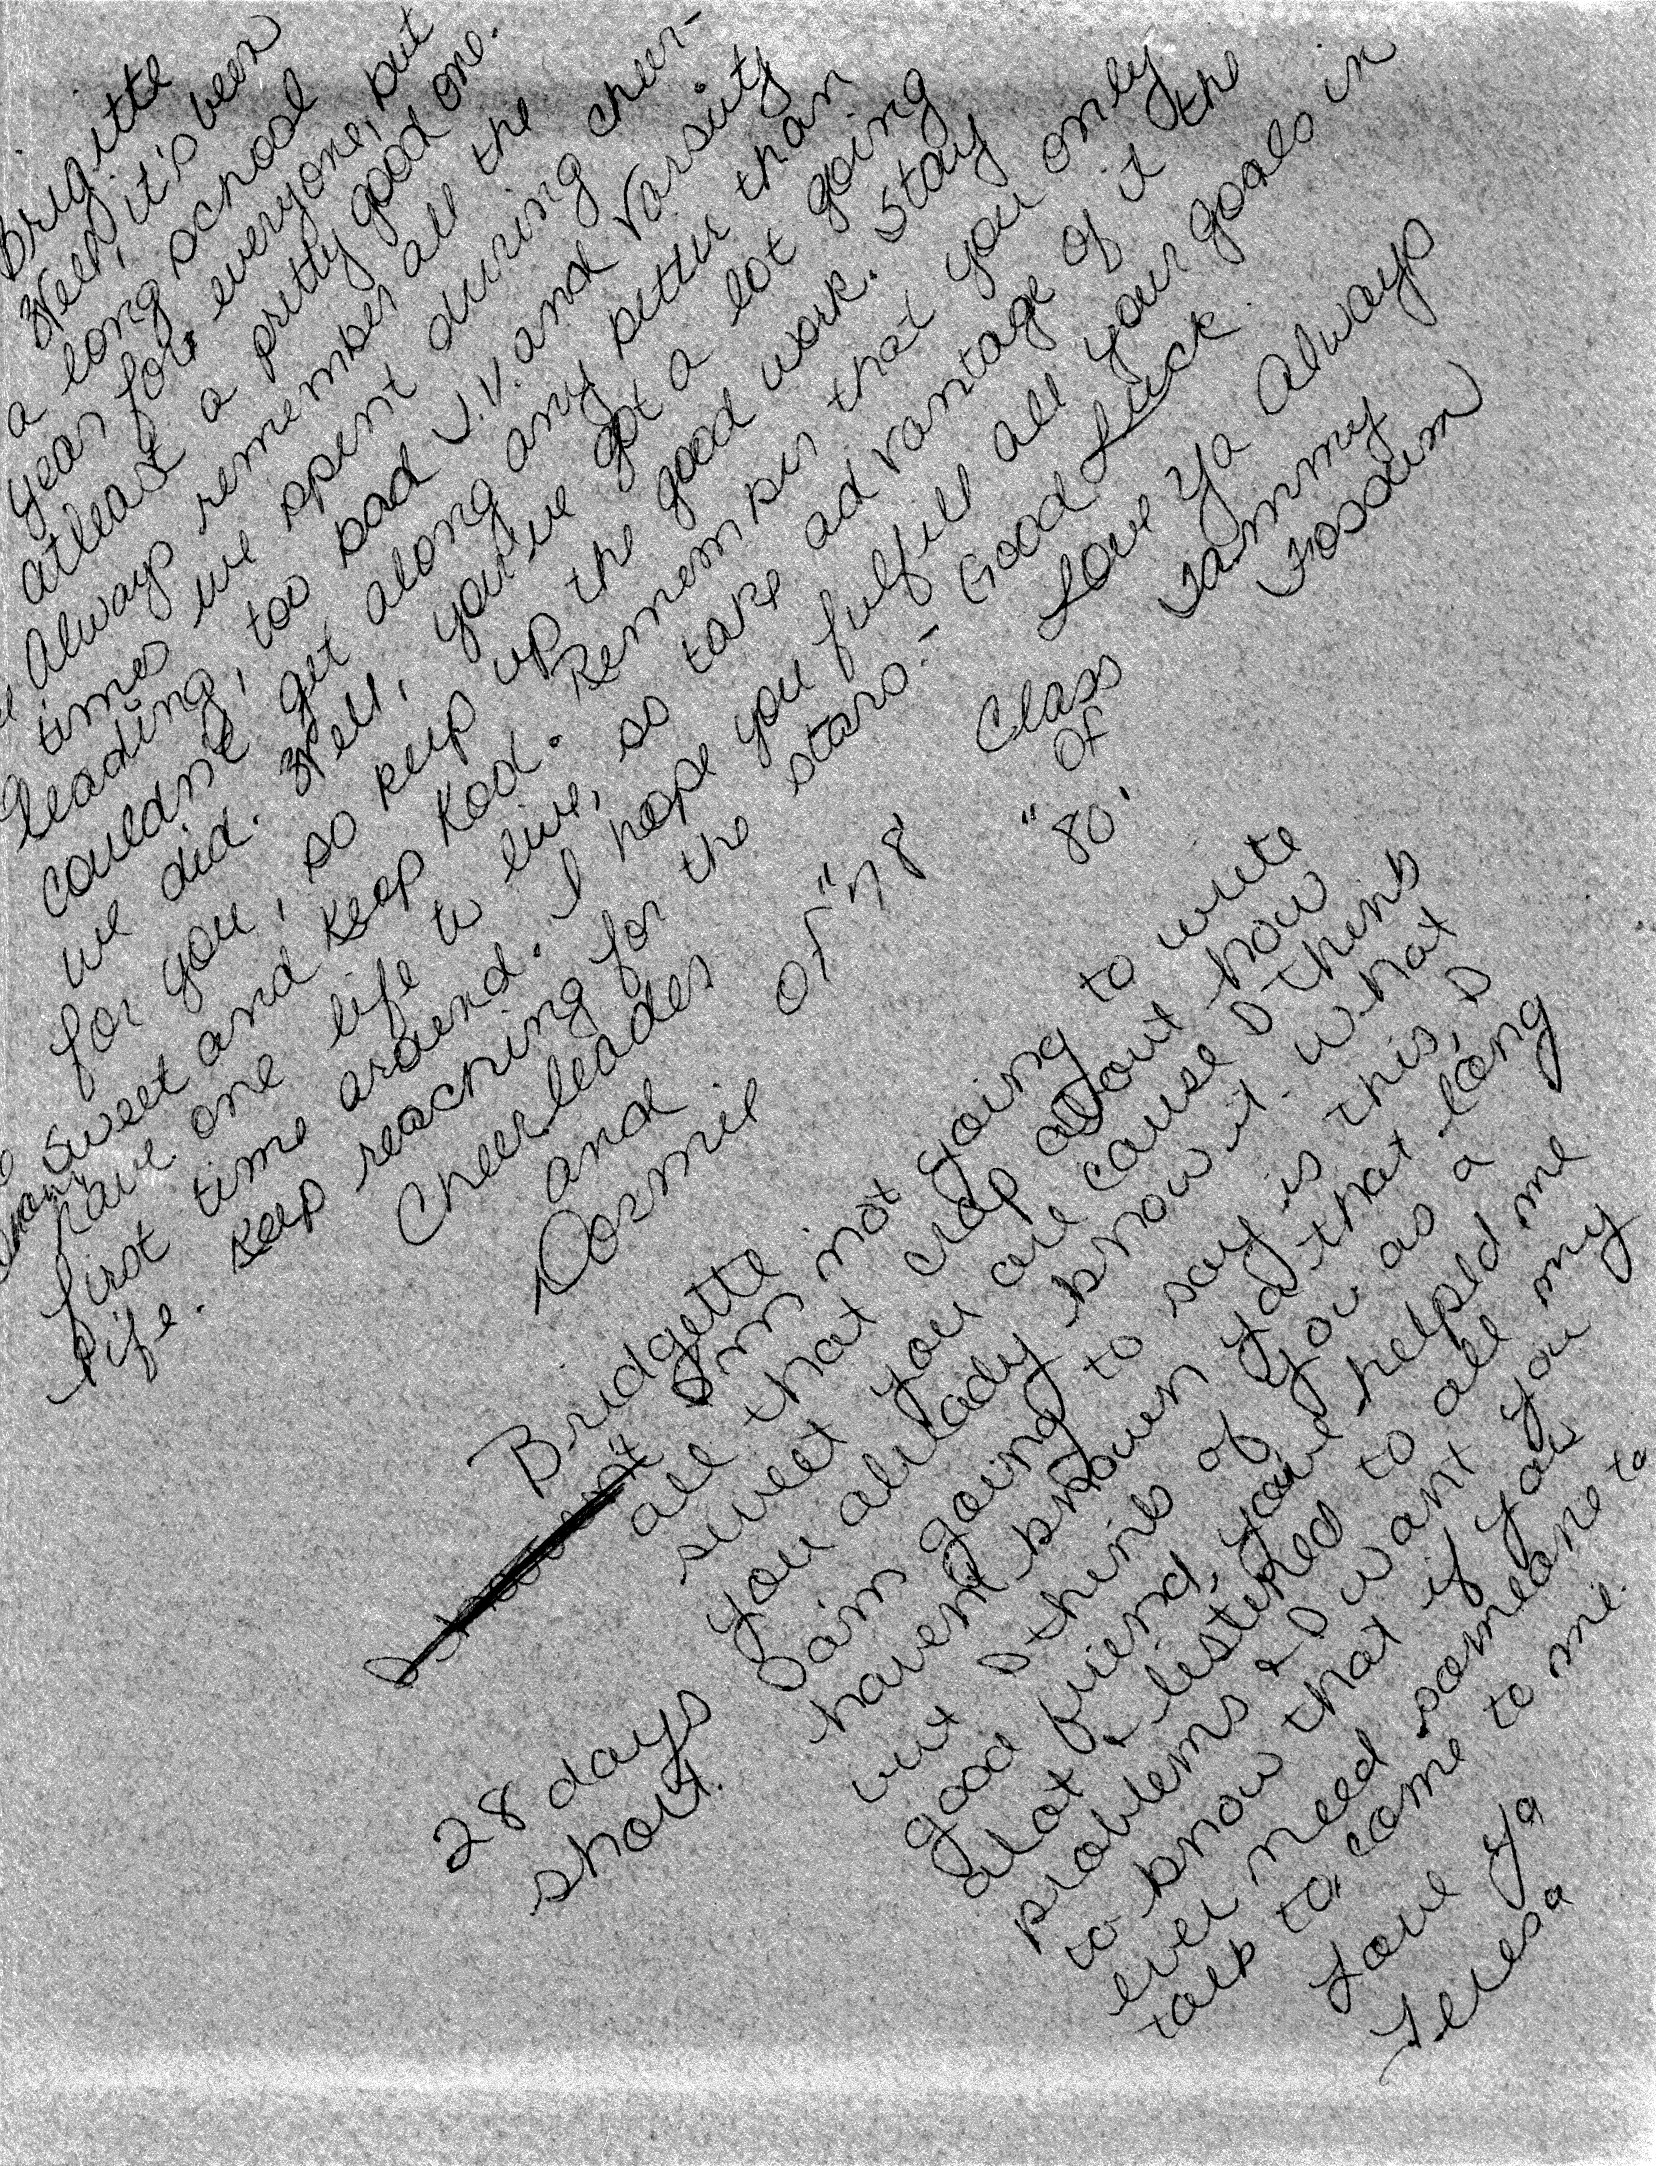 Brigitte
Well, it's been
a long school
year for everyone, but
atleast a pretty good one.
Always remember all the
times we spent during cheer-
leading, too bad J.V. and Varsity
couldn't get along any better than
we did. Well, you've got a lot going
for you, so keep up the good work. Stay
sweet and keep Kool. Remember that you only
have one life to live, so take advantage of it the
first time around. I hope you fulfill all your goals in
life. Keep reaching for the stars - Good Luck.
Cheerleader of "78'
and Class
Of
"80'
Love Ya Always
Tammy
Fossum
Bridgette
Im not going to write
all that crap about how
sweet you are cause I think
you already know it. What
I am going to say is this, I
havent known ya that long
but I think of you as a
good friend, you've helped me
alot & listened to all my
problems & I want you
to know that if you
ever need someone to
talk to, come to me.
Love Ya
Teresa
28 days
short.